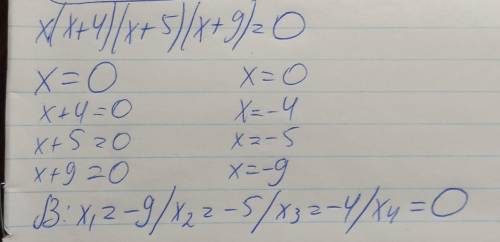 x(x+4)(x+5)(x+9)=0
x=0 x=0
x+4=0 x=-4
x+5=0 x=-5
x+9=0 x=-9
В: x₁=-9/x₂=-5/x₃=-4/x₄=0